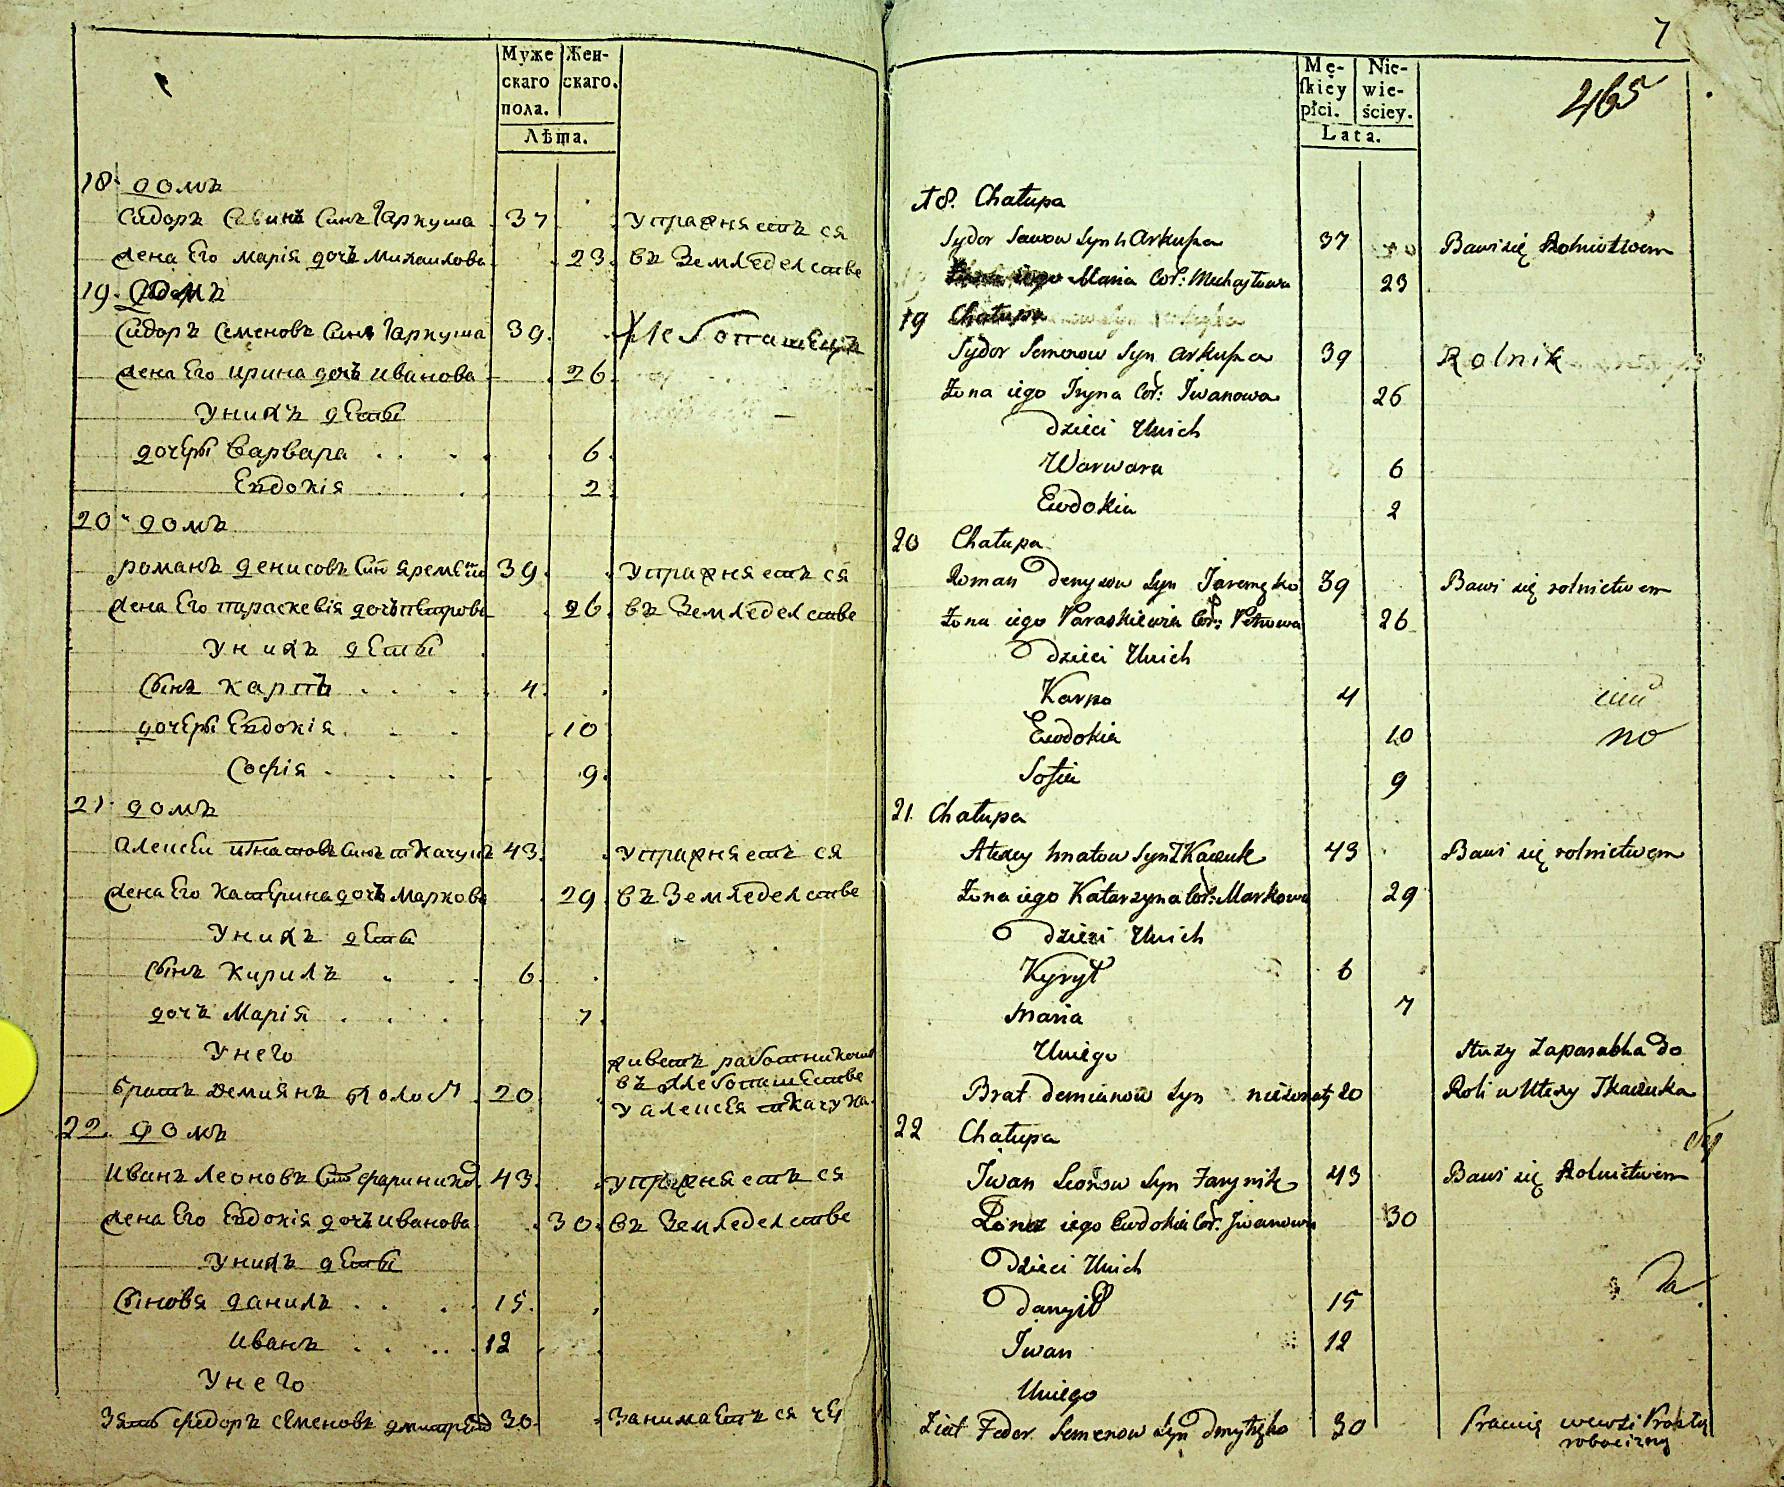 Муже
скаго
пола.
Жен-
скаго.
Лѣта.
18. домъ
Сидоръ Савинъ Синъ Гаркуша 37 упражняетъ ся
жена Его марія дочъ михаилова 23. въ Земледелстве
19. Домъ
Сидоръ Семеновъ Синъ Гаркуша 39. Хлебопашецъ
жена Его ирина дочъ иванова 26.
у нихъ дети
дочери варвара 6.
Евдокія 2.
20. домъ
романъ денисовъ Синъ 39. упражняетъ ся
жена Его параскевія дочъ петрова 26. въ Земледелстве
у нихъ дети
Сынъ карпъ 4.
дочери Евдокія 10
Софія 9.
21. домъ
алексеи игнатовъ Синъ ткачукъ 43. упражняетъ ся
жена Его катерина дочъ маркова 29. въ Земледелстве
у нихъ дети
Сынъ кирилъ 6.
дочъ марія 7.
у него живетъ работникомъ
братъ демиянъ холост 20 въ хлебопашестве
у алексея ткачука.
22. домъ
иванъ леоновъ Синъ 43. упражняетъ ся
жена Его Евдокія дочъ иванова 30. въ Земледелстве
у нихъ дети
Сыновя данилъ 15.
иванъ 12
у него
Зять федоръ семеновъ 30. Занимаетъ ся
7
Mę-
ſkiey
płci.
Nie-
wie-
ściey.
Lata.
465
18. Chałupa
Sydor Sawow Syn Harkusza 37 Bawi się Rolnictwem
Żona iego Maria Cor: Michayłowa 23
19 Chałupa
Sydor Semenow Syn Arkusza 39 Rolnik
Żona iego Iryna Cor: Iwanowa 26
Dzieci Unich
Warwara 6
Ewdokia 2
20 Chałupa
Roman Denysow Syn Jaremęko 39 Bawi się rolnictwem
Żona iego Paraskiewia Cor: Petrowa 26
Dzieci Unich
Karpo 4
Ewdokia 10 no
Sofia 9
21. Chałupa
Alexey Hnatow Syn Tkaczuk 43 Bawi się rolnictwem
Żona iego Katarzyna Cor: Markowa 29
Dzieci Unich
Kyrył 6
Maria 7
Uniego Służy Zaparobka do
Brat Demianow Syn nieżonaty 20 Roli u Ułexy Tkaczuka
22 Chałupa
Iwan Leonow Syn Farynik 43 Bawi się Rolnictwem
Żona iego Ewdokia Cor: Iwanowa 30
Dzieci Unich
Danyił 15
Iwan 12
Uniego
Zięć Fedor Semenow Syn Dmytręko 30 robocizny